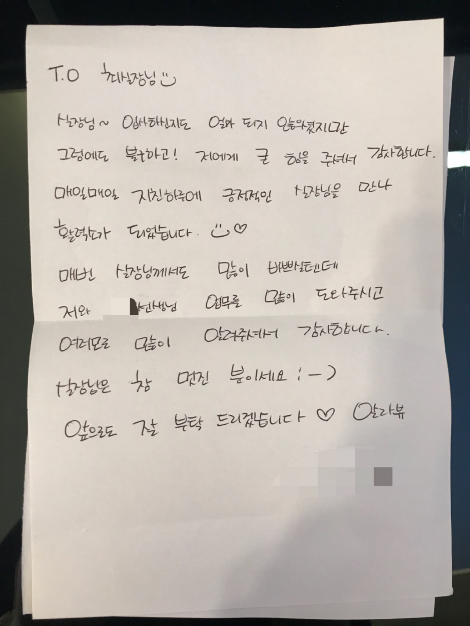 T.O 최실장님
실장님~ 입사하신지도 얼마 되지 않으셨지만
그럼에도 불구하고! 저에게 큰 힘을 주셔서 감사합니다.
매일매일 지친하루에 긍정적인 실장님을 만나
활력소가 되었습니다. ♡
매번 실장님께서도 많이 바쁘실텐데
저와 선생님 업무를 많이 도와주시고
여러모로 많이 알려주셔서 감사합니다.
실장님은 참 멋진 분이세요 :-)
앞으로도 잘 부탁 드리겠습니다 ♡ 알라뷰